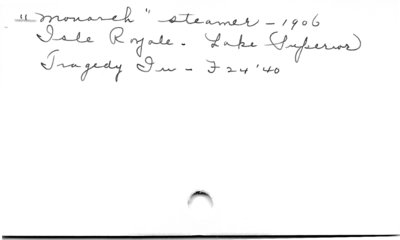 "Monarch" steamer - 1906
Isle Royale - Lake Superior
Tragedy In - F 24 '40